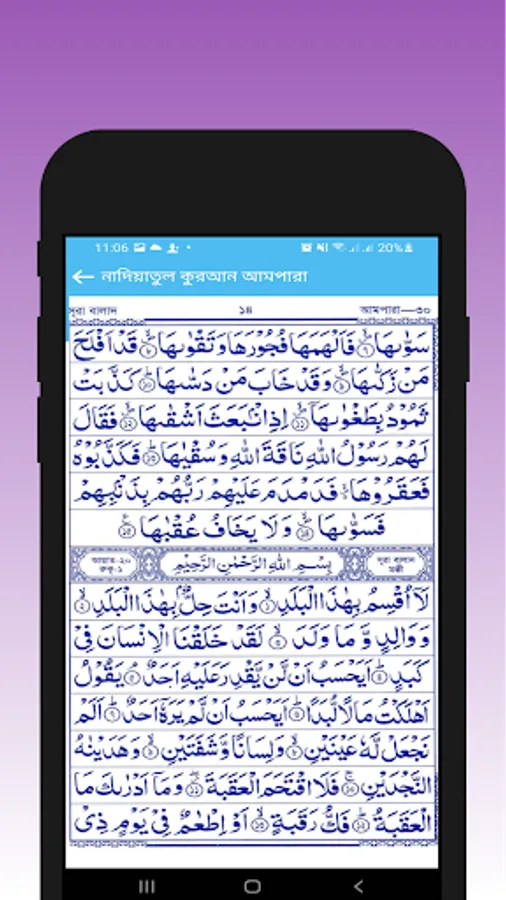 11:06 20%
নাদিয়াতুল কুরআন আমপারা
সূরা বালাদ ১৪ আমপারা—৩০
سَوّٰىهَا ۪ۙ﴿۷﴾ فَاَلْهَمَهَا فُجُوْرَهَا وَ تَقْوٰىهَا ۪ۙ﴿۸﴾ قَدْ اَفْلَحَ
مَنْ زَكّٰىهَا ۪ۙ﴿۹﴾ وَ قَدْ خَابَ مَنْ دَسّٰىهَا ؕ﴿۱۰﴾ كَذَّبَتْ
ثَمُوْدُ بِطَغْوٰىهَاۤ ۪ۙ﴿۱۱﴾ اِذِ انْۢبَعَثَ اَشْقٰىهَا ۪ۙ﴿۱۲﴾ فَقَالَ
لَهُمْ رَسُوْلُ اللّٰهِ نَاقَةَ اللّٰهِ وَ سُقْيٰهَا ؕ﴿۱۳﴾ فَكَذَّبُوْهُ
فَعَقَرُوْهَا ۪ۙ فَدَمْدَمَ عَلَيْهِمْ رَبُّهُمْ بِذَنْۢبِهِمْ
فَسَوّٰىهَا ۪ۙ﴿۱۴﴾ وَ لَا يَخَافُ عُقْبٰهَا ﴿۱۵﴾
আয়াত-২০ রুকু-১ بِسْمِ اللّٰهِ الرَّحْمٰنِ الرَّحِيْمِ সূরা বালাদ মক্কী
لَاۤ اُقْسِمُ بِهٰذَا الْبَلَدِ ۙ﴿۱﴾ وَ اَنْتَ حِلٌّۢ بِهٰذَا الْبَلَدِ ۙ﴿۲﴾
وَ وَالِدٍ وَّ مَا وَلَدَ ۙ﴿۳﴾ لَقَدْ خَلَقْنَا الْاِنْسَانَ فِيْ
كَبَدٍ ؕ﴿۴﴾ اَيَحْسَبُ اَنْ لَّنْ يَّقْدِرَ عَلَيْهِ اَحَدٌ ۘ﴿۵﴾ يَقُوْلُ
اَهْلَكْتُ مَالًا لُّبَدًا ؕ﴿۶﴾ اَيَحْسَبُ اَنْ لَّمْ يَرَهٗۤ اَحَدٌ ؕ﴿۷﴾ اَلَمْ
نَجْعَلْ لَّهٗ عَيْنَيْنِ ۙ﴿۸﴾ وَ لِسَانًا وَّ شَفَتَيْنِ ۙ﴿۹﴾ وَ هَدَيْنٰهُ
النَّجْدَيْنِ ۚ﴿۱۰﴾ فَلَا اقْتَحَمَ الْعَقَبَةَ ۫ۖ﴿۱۱﴾ وَ مَاۤ اَدْرٰىكَ مَا
الْعَقَبَةُ ؕ﴿۱۲﴾ فَكُّ رَقَبَةٍ ۙ﴿۱۳﴾ اَوْ اِطْعٰمٌ فِيْ يَوْمٍ ذِيْ